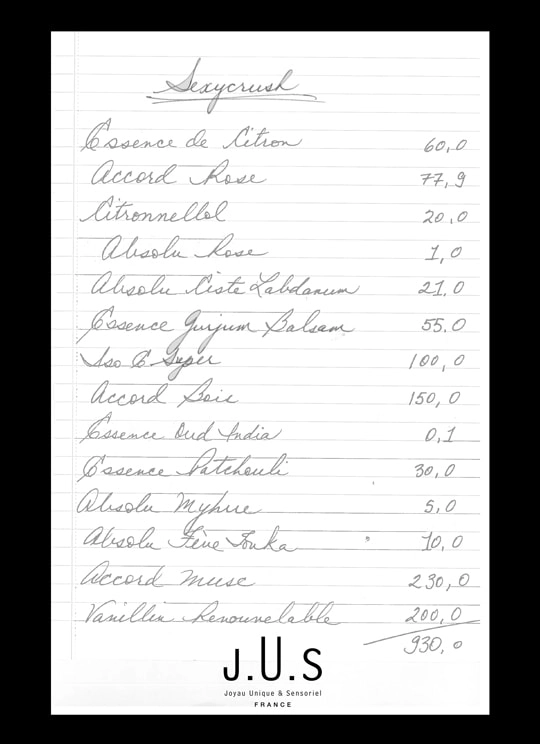 Sexycrush
Essence de Citron 60,0
Accord Rose 77,9
Citronnellol 20,0
Absolu Rose 1,0
Absolu Ciste Labdanum 21,0
Essence Gurjum Balsam 55,0
Iso E Super 100,0
Accord Bois 150,0
Essence Oud India 0,1
Essence Patchouli 30,0
Absolu Myhrre 5,0
Absolu Fève Tonka 10,0
Accord Musc 230,0
Vanillin Renouvelable 200,0
930,0
J.U.S
Joyau Unique & Sensoriel
FRANCE